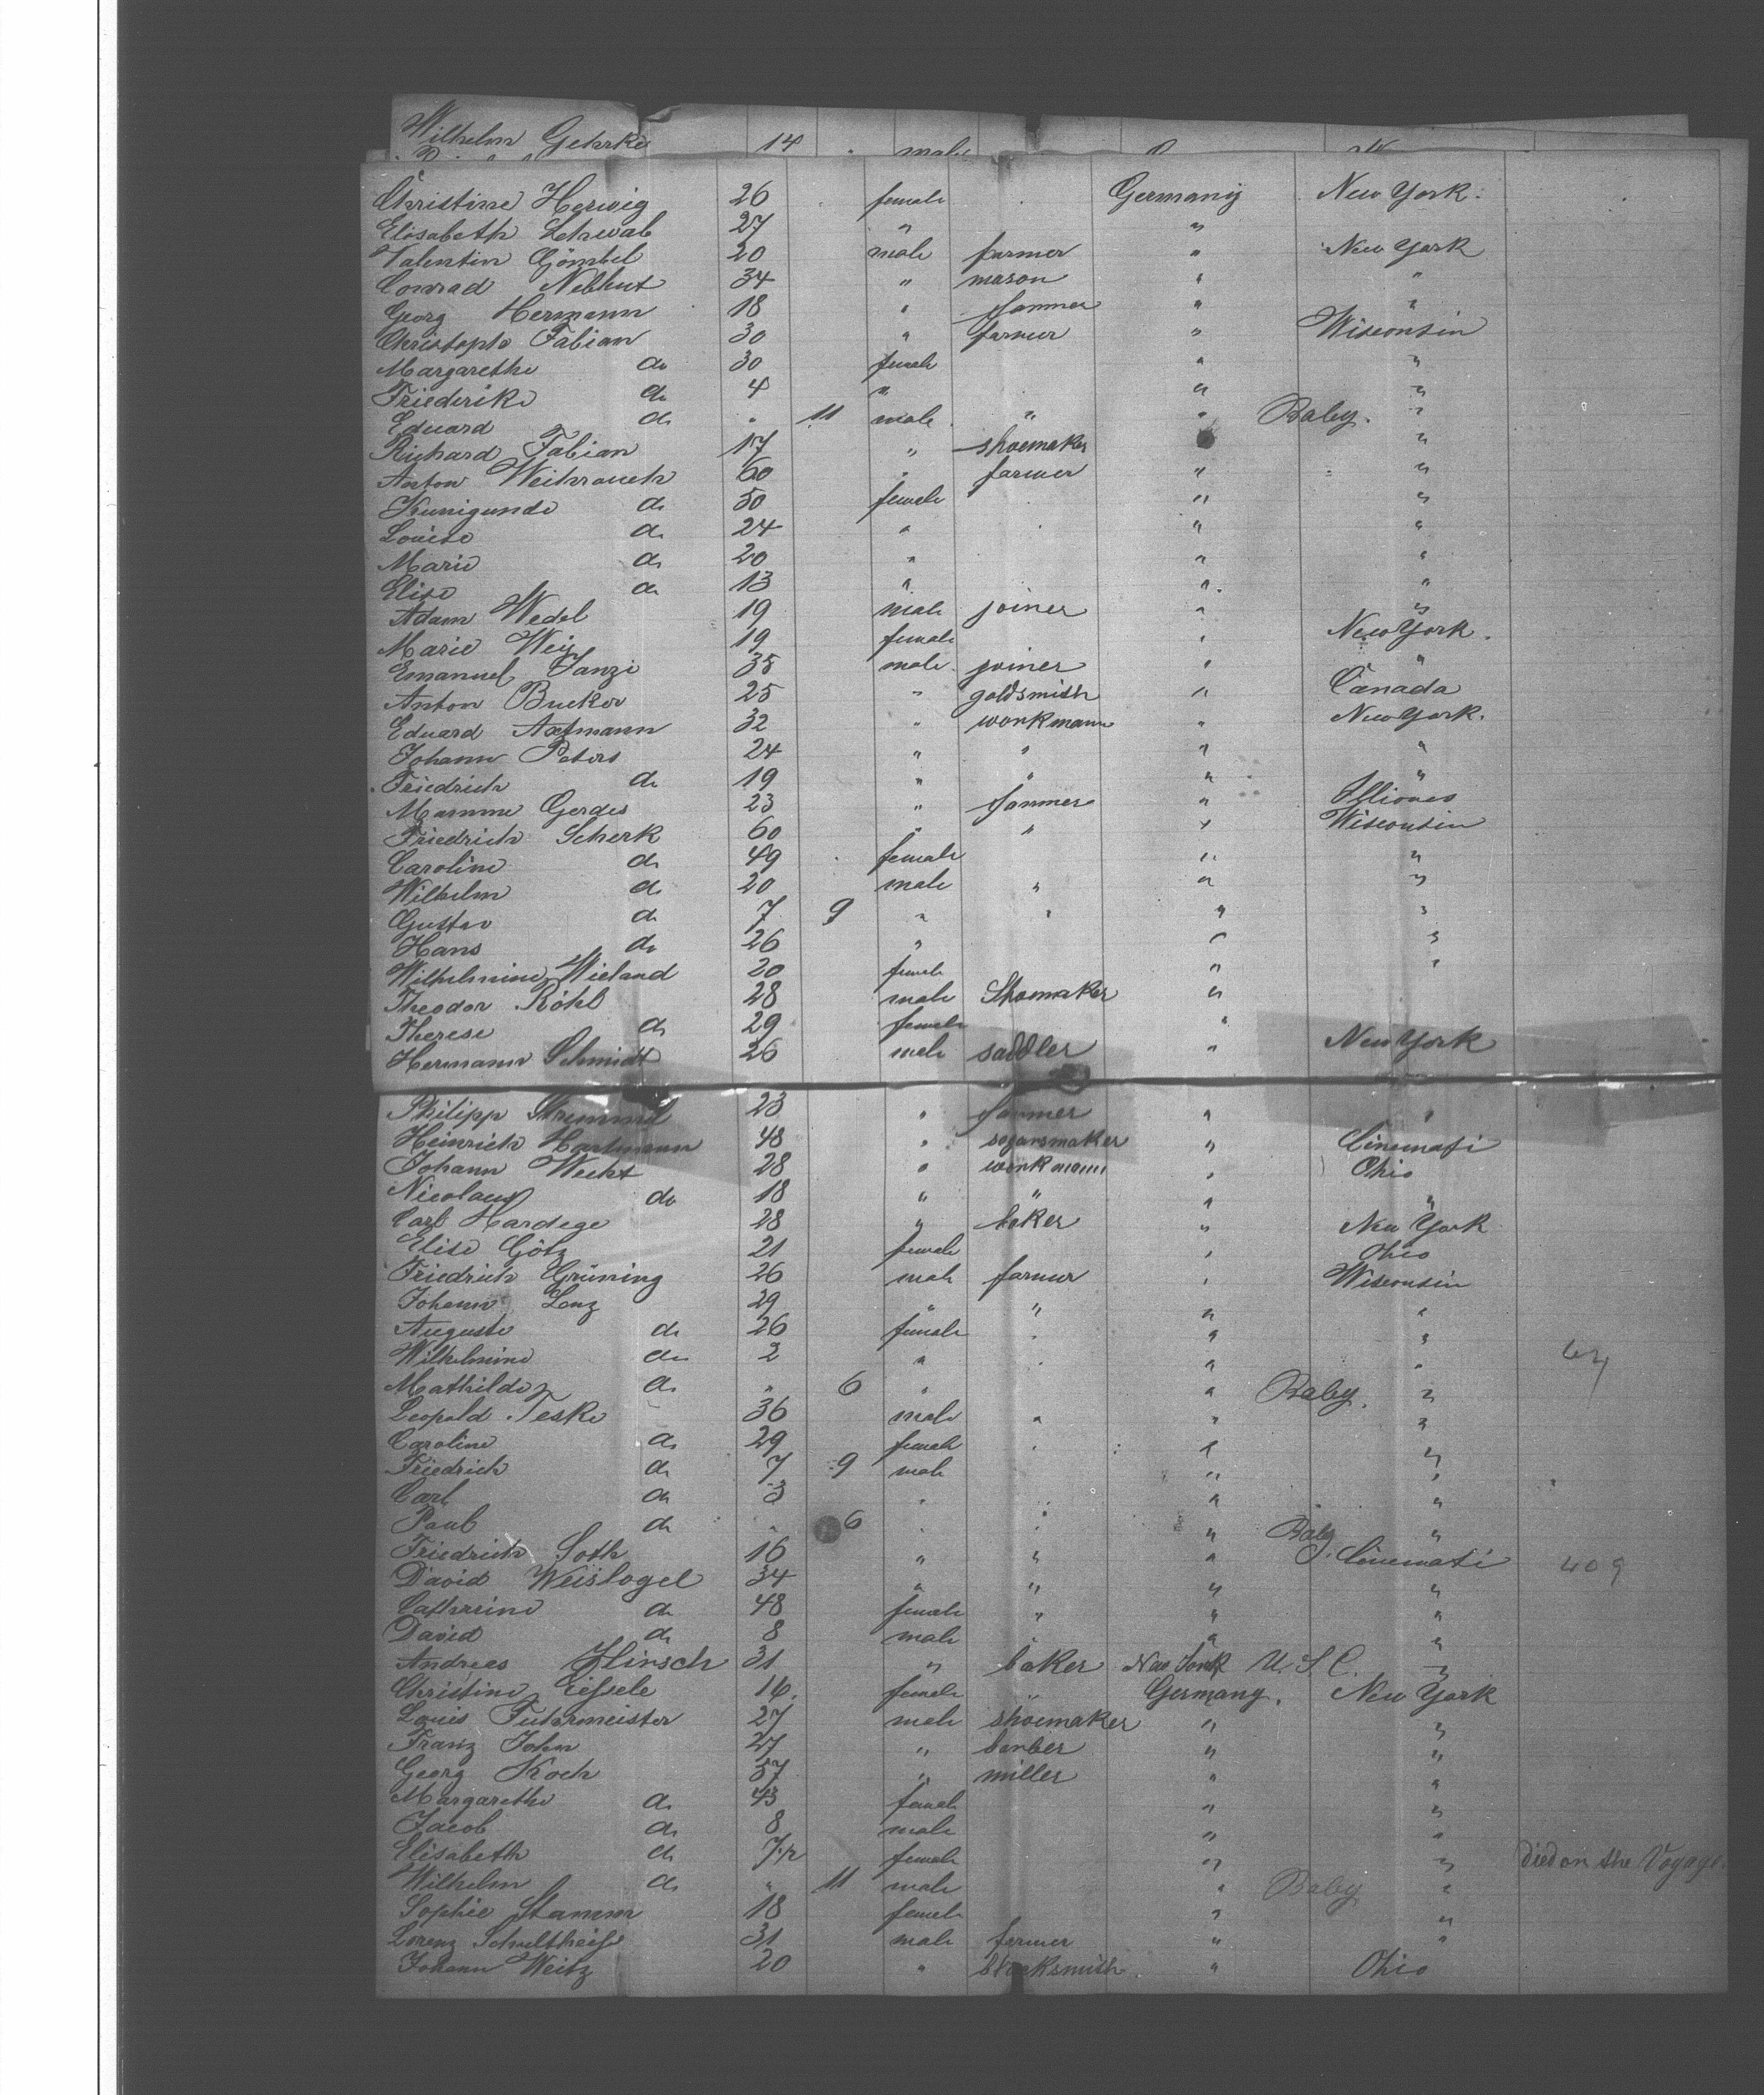 Wilhelm Gehrke 14 male
Christine Herwig 26 female Germany New York.
Elisabeth Schwab 27 " "
Valentin Gömbel 20 male farmer " New York
Conrad Nebhut 34 " mason " "
Georg Hermann 18 " farmer " "
Christoph Fabian 30 " farmer " Wisconsin
Margarethe do 30 female " "
Friederike do 4 " " "
Eduard do " 11 male " " Baby. "
Richard Fabian 17 " shoemaker "
Anton Weihrauch 60 " farmer " "
Kunigunde do 50 female " "
Louise do 24 " " "
Marie do 20 " " "
Elise do 13 " " "
Adam Wedel 19 male joiner " "
Marie Weis 19 female " New York.
Emanuel 35 male joiner " "
Anton Bucker 25 " goldsmith " Canada
Eduard Axtmann 32 " workmann " New York.
Johann Peters 24 " " " "
Friedrich do 19 " " " "
Mamme Gerdes 23 " farmer " Illiones
Friedrich Scherk 60 " " " Wisconsin
Caroline do 49 female " "
Wilhelm do 20 male " " "
Gustav do 7 9 " " " "
Hans do 26 " " "
Wilhelmine Wieland 20 female " "
Theodor Röhl 28 male Shoemaker "
Therese do 29 female "
Hermann Schmidt 26 male saddler " New York
Philipp 23 " farmer " "
Heinrich Hartmann 48 " segarsmaker " Cincinnati
Johann Wecht 28 " workmann " Ohio
Nicolaus do 18 " " " "
Carl Hardege 28 " baker " New York
Elise Götz 21 female " Ohio
Friedrich Grüning 26 male farmer " Wisconsin
Johann Lenz 29 " " " "
Auguste do 26 female " "
Wilhelmine do 2 " " "
Mathilde do " 6 " " Baby. "
Leopold Teske 36 male " " "
Caroline do 29 female " "
Friedrich do 7 9 male " "
Carl do 3 " " "
Paul do " 6 " " Baby "
Friedrich Soth 16 " " " Cinemati 409
David Weislogel 34 " " " "
Catherine do 48 female " " "
David do 8 male " "
Andreas Hirsch 31 " baker New York U.S.C. "
Christine Eissele 16. female " Germany. New York
Louis Fuhrmeister 27 male shoemaker " "
Franz John 27 " barber " "
Georg Koch 37 " miller " "
Margarethe do 43 female " "
Jacob do 8 male " "
Elisabeth do female " " died on the Voyage.
Wilhelm do " 11 male " Baby "
Sophie Stamm 18 female " "
Lorenz Schultheiss 31 male farmer " "
Johann Weitz 20 " blacksmith " Ohio